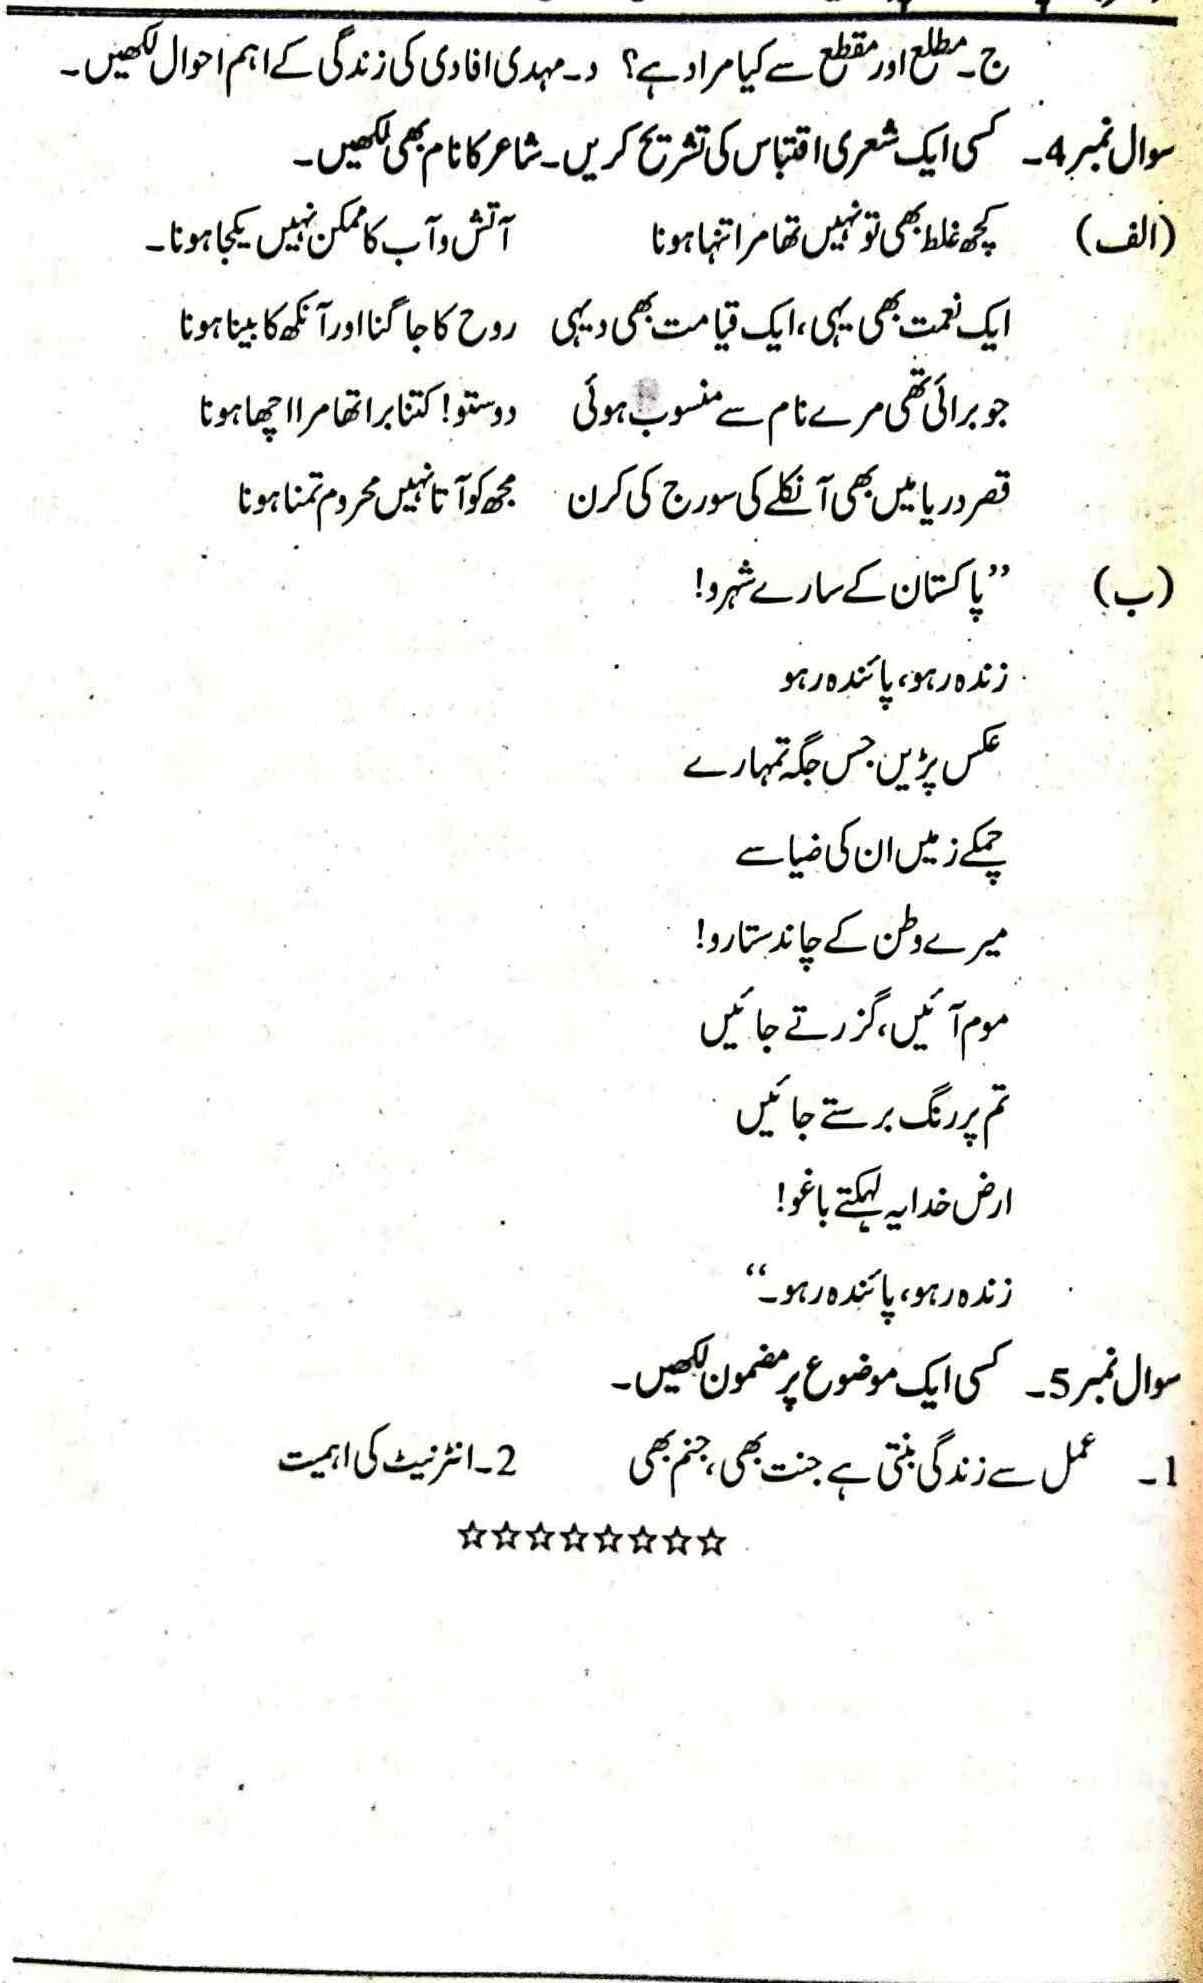 ج۔ مطلع اور مقطع سے کیا مراد ہے؟ د۔ مہدی افادی کی زندگی کے اہم احوال لکھیں۔
سوال نمبر 4۔ کسی ایک شعری اقتباس کی تشریح کریں۔ شاعر کا نام بھی لکھیں۔
(الف) کچھ غلط بھی تو نہیں تھا مرا تنہا ہونا آتش و آب کا ممکن نہیں یکجا ہونا۔
ایک نعمت بھی یہی، ایک قیامت بھی دیہی روح کا جاگنا اور آنکھ کا بینا ہونا
جو برائی تھی مرے نام سے منسوب ہوئی دوستو! کتنا برا تھا مرا اچھا ہونا
قصر دریا میں بھی آ نکلے کی سورج کی کرن مجھ کو آتا نہیں محروم تمنا ہونا
(ب) ”پاکستان کے سارے شہرو!
زندہ رہو، پائندہ رہو
عکس پڑیں جس جگہ تمہارے
چمکے زمیں ان کی ضیا سے
میرے وطن کے چاند ستارو!
موم آئیں، گزرتے جائیں
تم پر رنگ برستے جائیں
ارض خدا یہ لہکتے باغو!
زندہ رہو، پائندہ رہو۔“
سوال نمبر 5۔ کسی ایک موضوع پر مضمون لکھیں۔
1۔ عمل سے زندگی بنتی ہے جنت بھی، جنم بھی 2۔ انٹرنیٹ کی اہمیت
☆☆☆☆☆☆☆☆